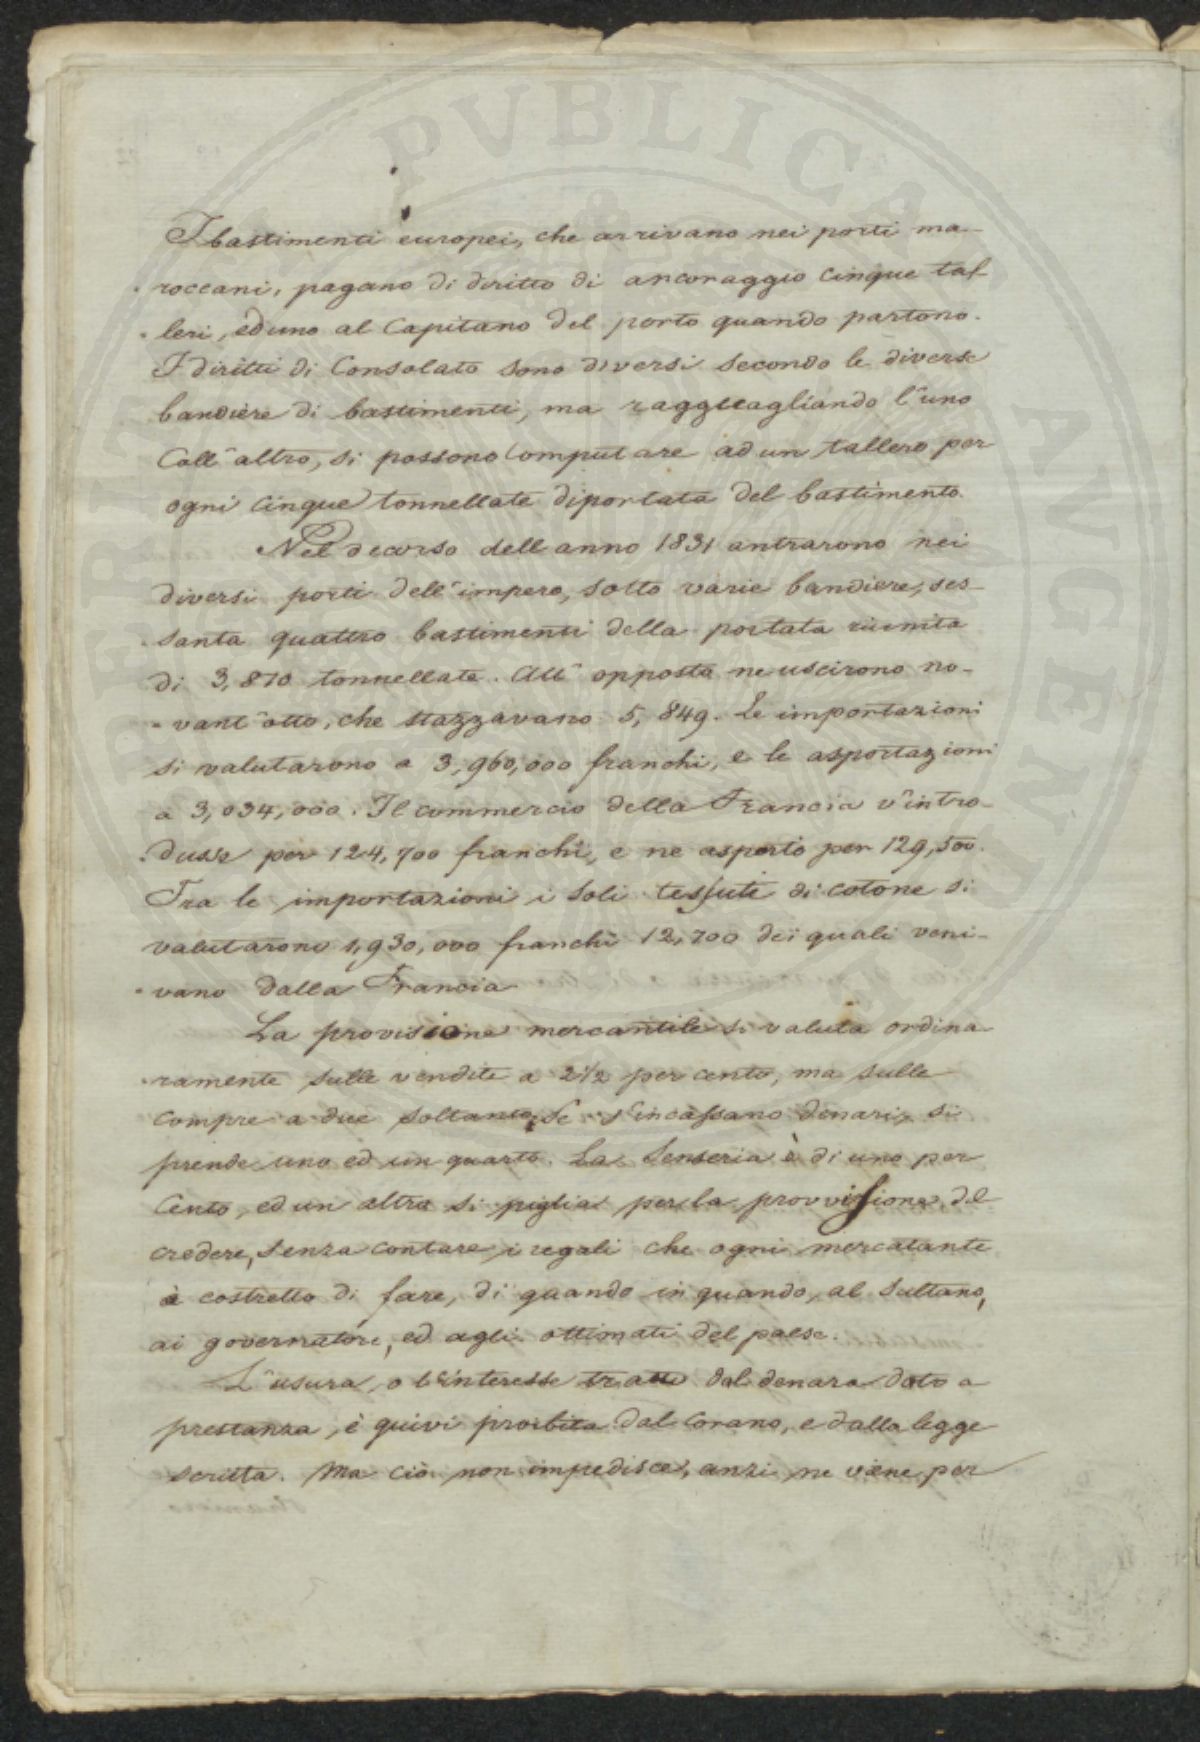 I bastimenti europei, che arrivano nei porti ma-
roccani, pagano di diritto di ancoraggio cinque tal-
leri, ed uno al Capitano del porto quando partono.
I diritti di Consolato sono diversi secondo le diverse
bandiere di bastimenti, ma ragguagliando l'uno
Coll'altro, si possono computare ad un tallero per
ogni cinque tonnellate di portata del bastimento.
Nel decorso dell anno 1831 antrarono nei
diversi porti dell'impero, sotto varie bandiere, ses-
santa quattro bastimenti della portata riunita
di 3,870 tonnellate. All' opposto ne uscirono no-
vant'otto, che stazzavano 5,849. Le importazioni
si valutarono a 3,960,000 franchi, e le asportazioni
a 3,034,000. Il commercio della Francia v'intro-
dusse per 124,700 franchi, e ne asportò per 129,500.
Tra le importazioni i soli tessuti di cotone si
valutarono 1,930,000 franchi 12,700 dei quali veni-
vano dalla Francia
La provisione mercantile si valuta ordina
ramente sulle vendite a 2 1/2 per cento, ma sulle
compre a due soltanto. Se s'incassano denari, si
prende uno ed un quarto. La Senseria è di uno per
Cento, ed un altro si piglia per la provvisione del
credere, senza contare i regali che ogni mercatante
è costretto di fare, di quando in quando, al Sultano,
ai governatori, ed agli ottimati del paese.
L'usura, o l'interesse tratto dal denaro dato a
prestanza, è quivi proibita dal Corano, e dalla legge
scritta. Ma ciò non impedisce, anzi ne viene per
PVBLICA AVCEN